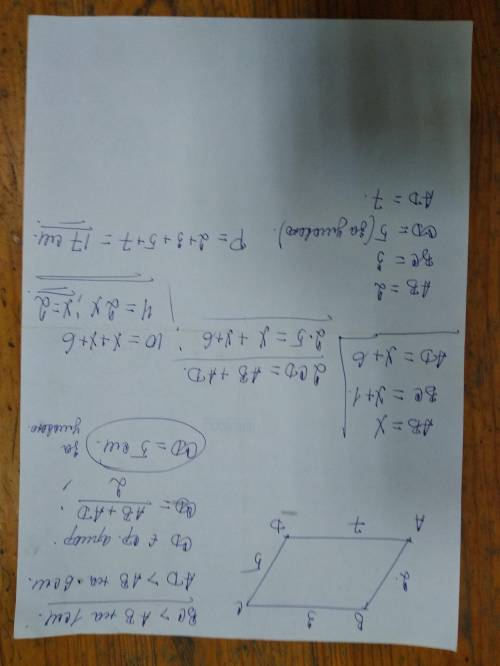 B
C
3
2
5
A
7
D
BC > AB на 1 см.
AD > AB на 6 см.
CD є ср. арифм.
CD = AB + AD / 2 ;
CD = 5 см. за умовою.
AB = x
BC = x+1.
AD = x+6
2CD = AB + AD.
2·5 = x + x+6 ;
10 = x+x+6
4 = 2x ; x=2
AB = 2
BC = 3
CD = 5 (за умовою).
AD = 7.
P = 2+3+5+7 = 17 см.